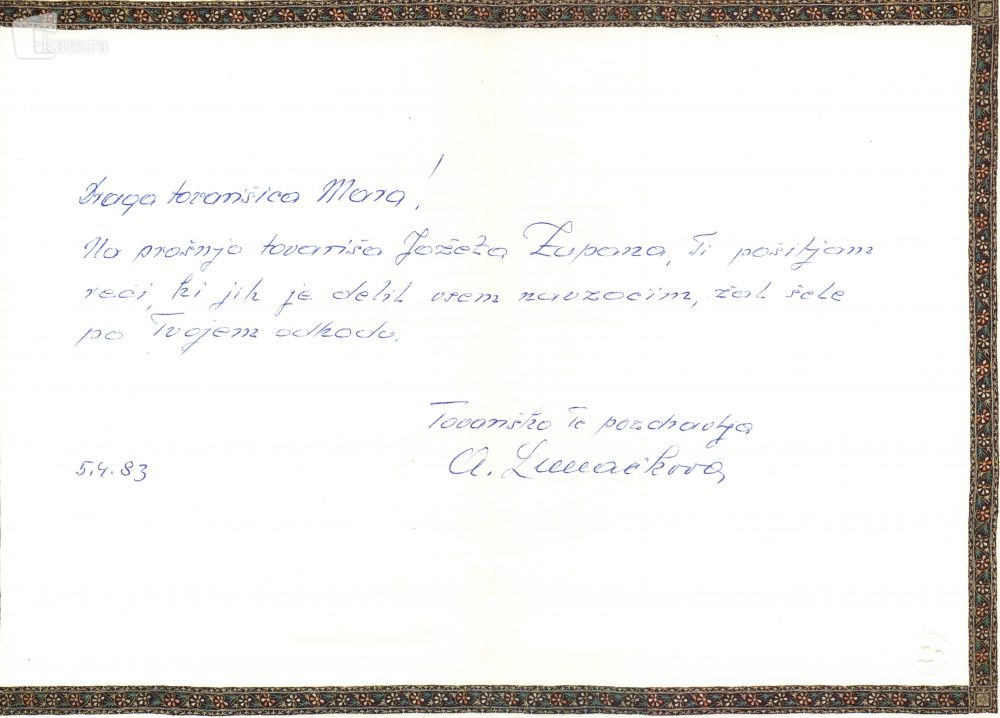 kamra
Draga tovarišica Mara!
Na prošnjo tovariša Jožeta Zupana, Ti pošiljam
reči, ki jih je delil vsem navzočim, žal šele
po Tvojem odhodu.
Tovariško Te pozdravlja
A.
5.4.83